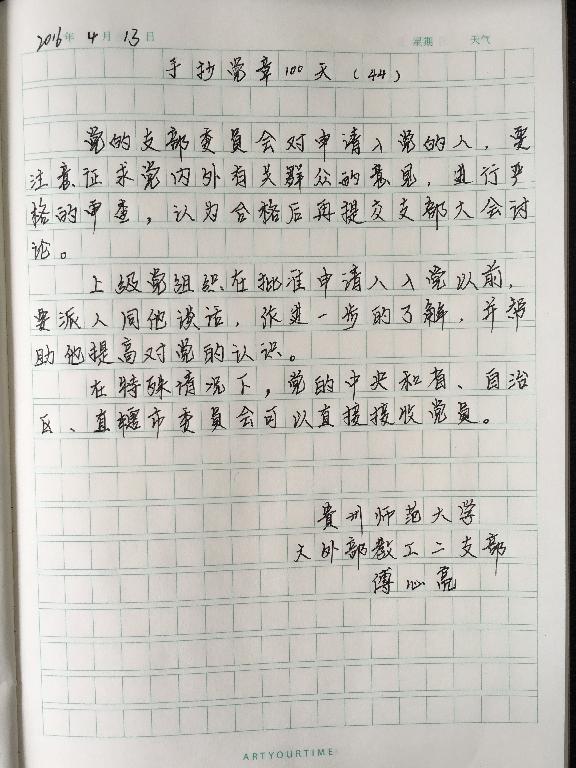 2016年 4月 13日 星期 天气
手抄党章100天(44)
党的支部委员会对申请入党的人，要
注意征求党内外有关群众的意见，进行严
格的审查，认为合格后再提交支部大会讨
论。
上级党组织在批准申请人入党以前，
要派人同他谈话，作进一步的了解，并帮
助他提高对党的认识。
在特殊情况下，党的中央和省、自治
区、直辖市委员会可以直接接收党员。
貴州师范大学
大外部教工二支部
傅心亮
ARTYOURTIME